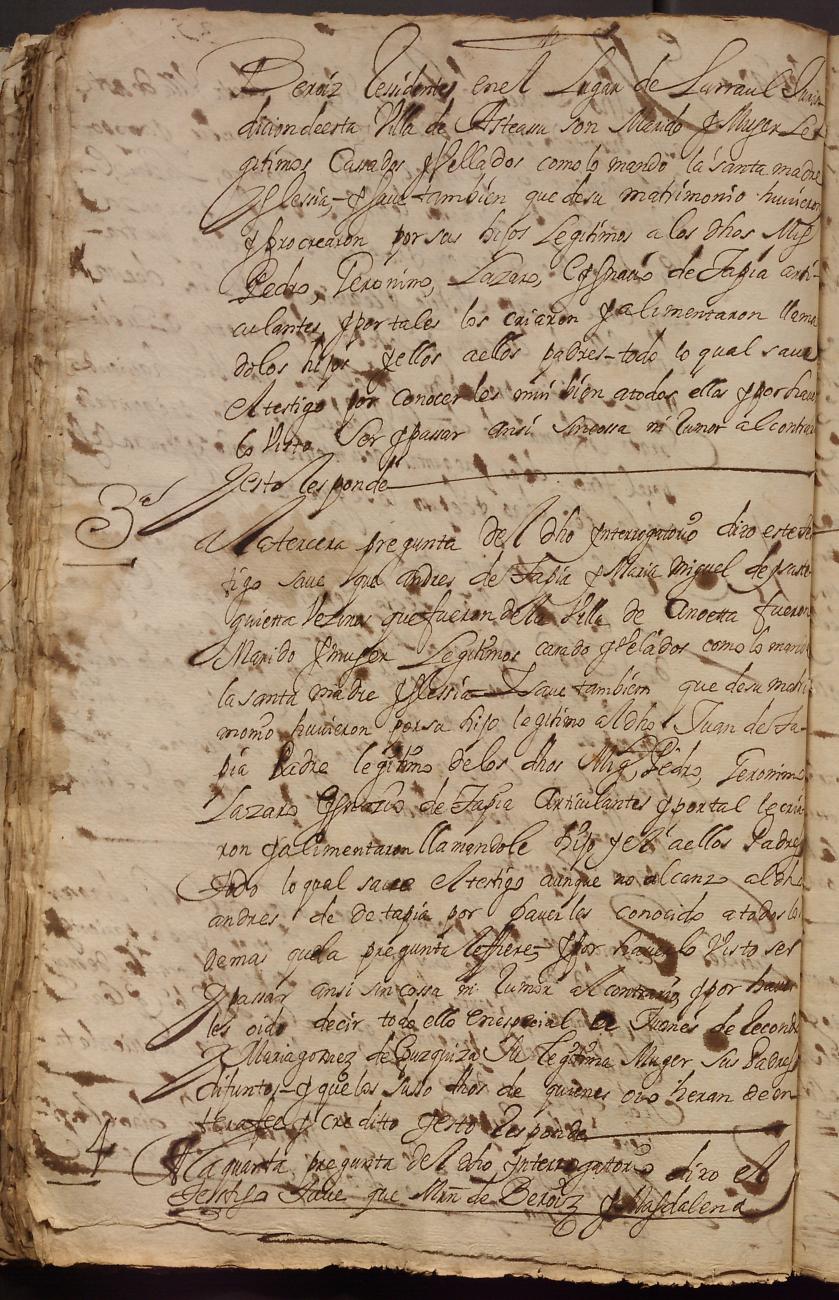 Beroiz Residentes en el Lugar de Larraul Juris
diciondeesta Villa de Asteasu son Marido y Muger Le
gitimos Cassados y Vellados como lo mando la santa madre
Yglesia, y save tambien que desu matrimonio huvieron
y procrearon por sus hijos Legitimos a los dhos Migl
Pedro, Geronimo, Lazaro, Ygnacio de Tapia arti-
culantes y por tales los criaron y alimentaron llama
dolos hijos y ellos aellos padres - todo lo qual save
el testigo por conocerles mui bien atodos ellos y por hauer
lo Visto Ser y passar ansi sincossa ni Rumor al contrario
Yesto Responde
3ª
A la tercera pregunta del dho Ynterrogatorio dixo este tes
tigo save que andres de Tapia y Maria Miguel de
Vezinos que fueron dela Villa de Anoeta fueron
Marido y muger Legitimos casado y Velados como lo mando
la santa madre Yglesia Y save tambien que desu matri
monio huvieron por su hijo legitimo al dho Juan de Ta-
pia Padre legitimo delos dhos Migl, Pedro, Geronimo
Lazaro Ygnacio de Tapia Articulantes y por tal le cria
ron y alimentaron llamandole hijo y el aellos Padres
Todo lo qual save el testigo aunque no alcanzo al dho
andres de de tapia por haverles conocido a todos los
demas quela pregunta Refiere, y por haverlo Visto ser
Y passar ansi sin cossa ni Rumor al contrario y por haver
les oido decir todo ello en especial a Juanes de Recondo
Y Maria gomez de Guzquiza Su legitima Muger Sus Padres
difuntos - y que los Suso dhos de quienes oio heran de en
tera fee y creditto Yesto Responde
4
A la quarta pregunta del dho Ynterrogatorio dixo el
Testigo Save que Mrn de Beroiz y Magdalena